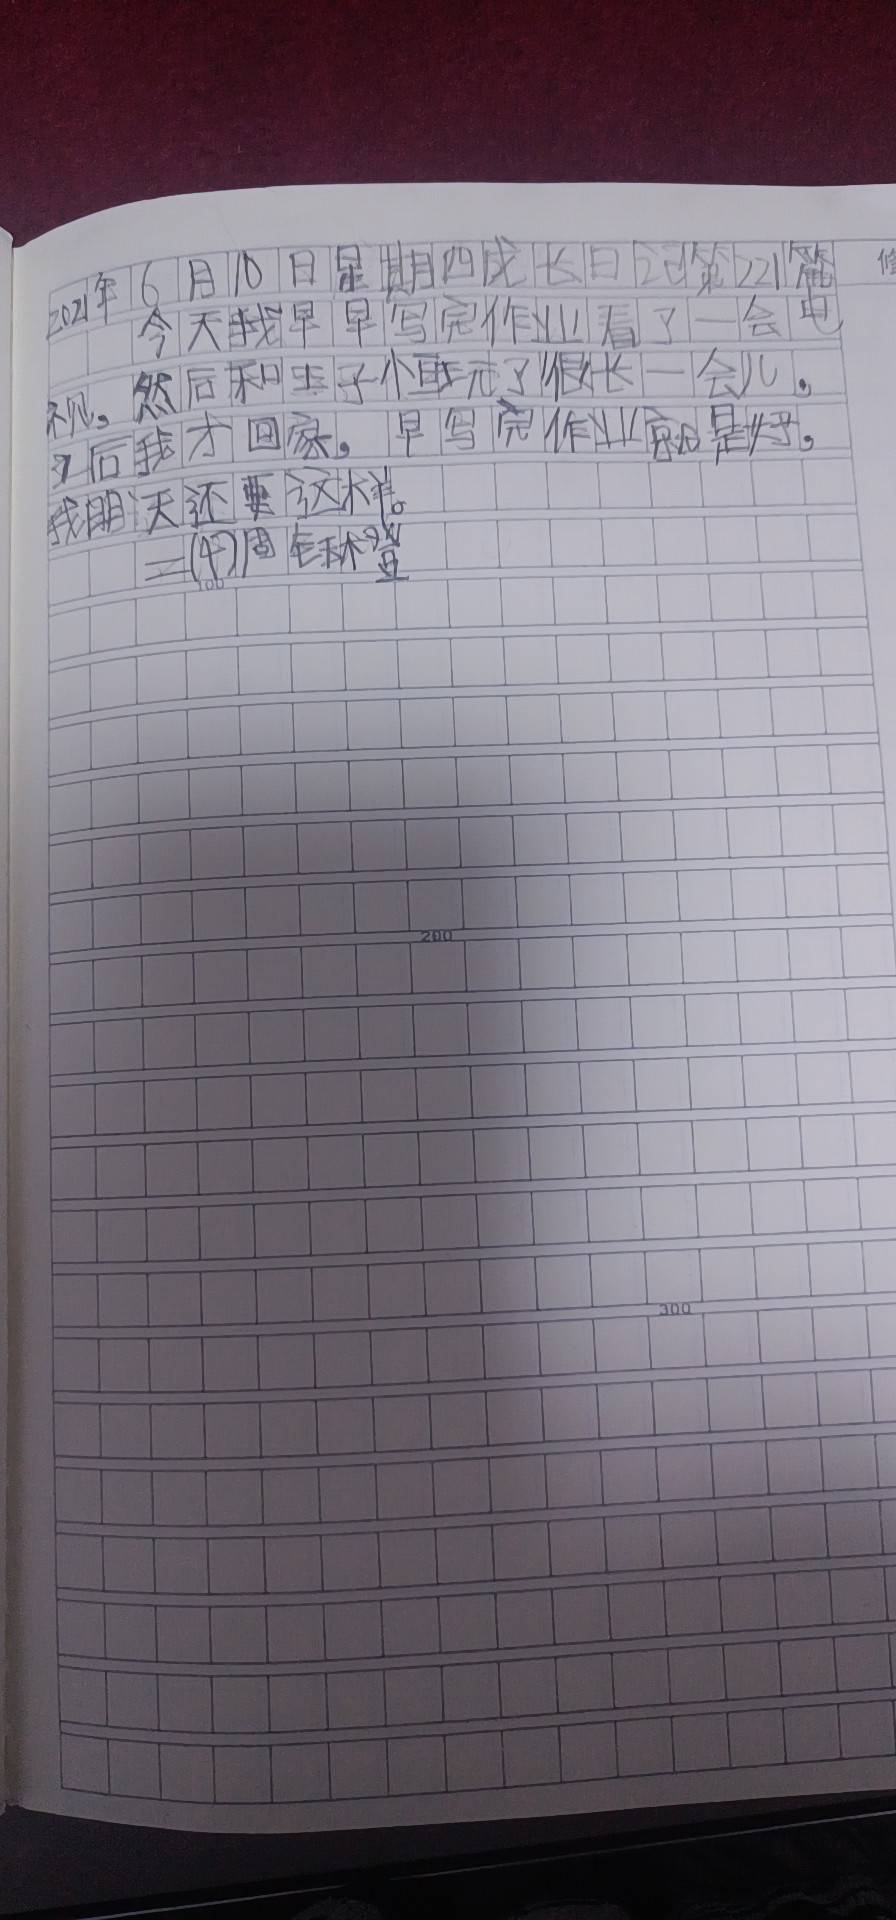 2021年6月10日星期四成长日记第221篇
今天我早早写完作业看了一会电
视。然后和王子小玩了很长一会儿。
后我才回家。早写完作业就是好。
我明天还要这样。
二(4)周
100
200
300